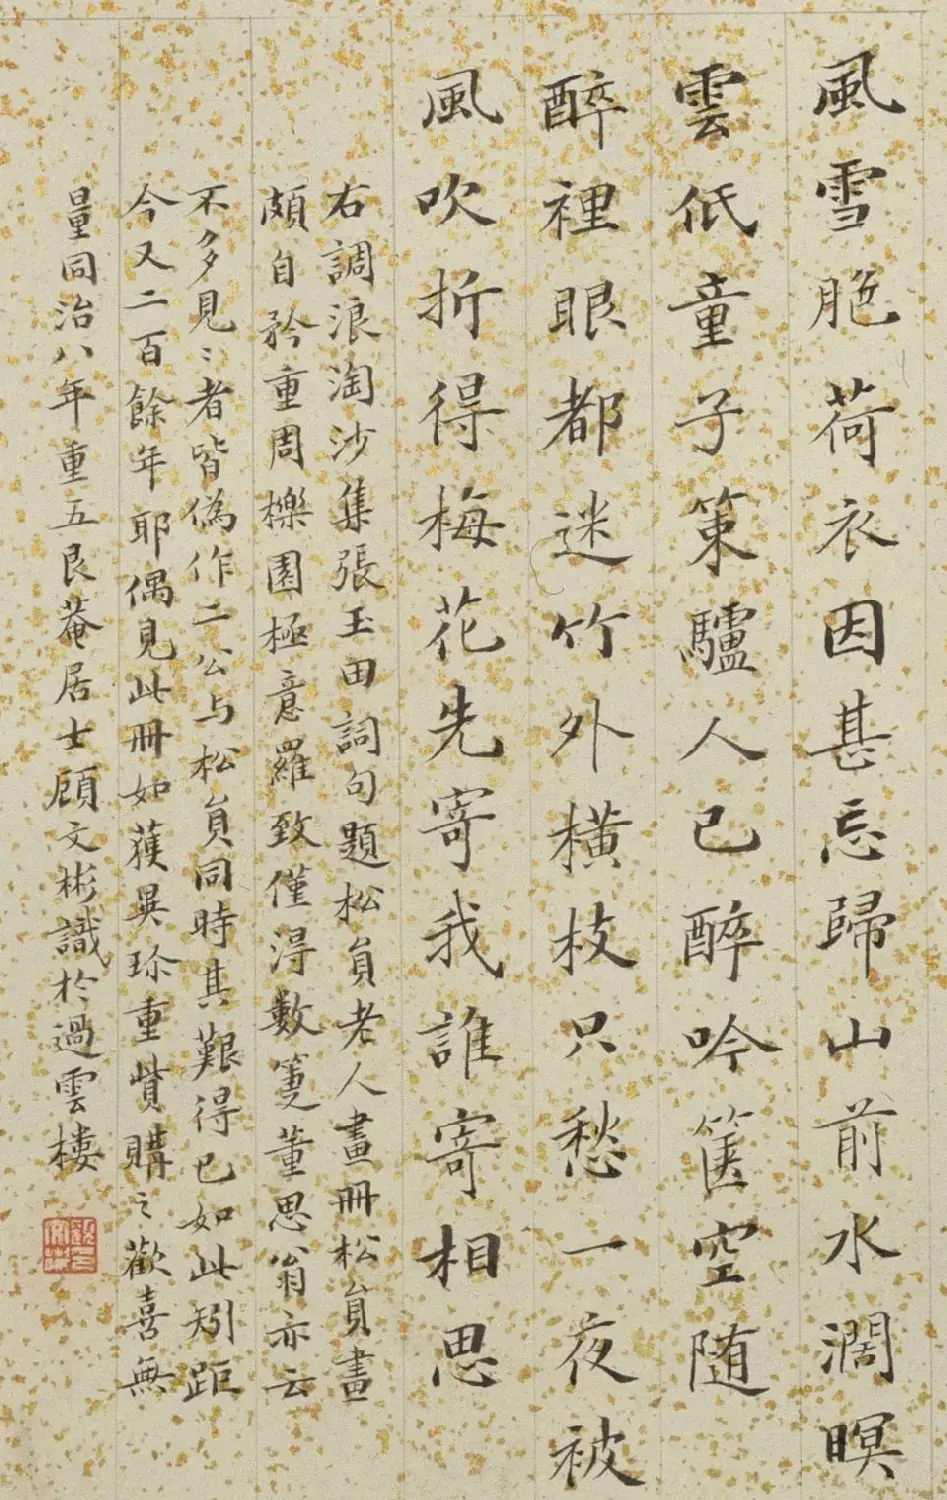 風雪脃荷衣因甚忘歸山前水濶暝
雲低童子策驢人已醉吟篋空随
醉裡眼都迷竹外橫枝只愁一夜被
風吹折得梅花先寄我誰寄相思
右調浪淘沙集張玉田詞句題松負老人畫冊松負畫
頗自矜重周櫟園極意羅致僅淂數箑董思翁亦云
不多見〻者皆偽作二公与松負同時其艱得已如此矧距
今又二百餘年耶偶見此冊如獲異珎重貲購之歡喜無
量同治八年重五艮菴居士顧文彬識於過雲樓